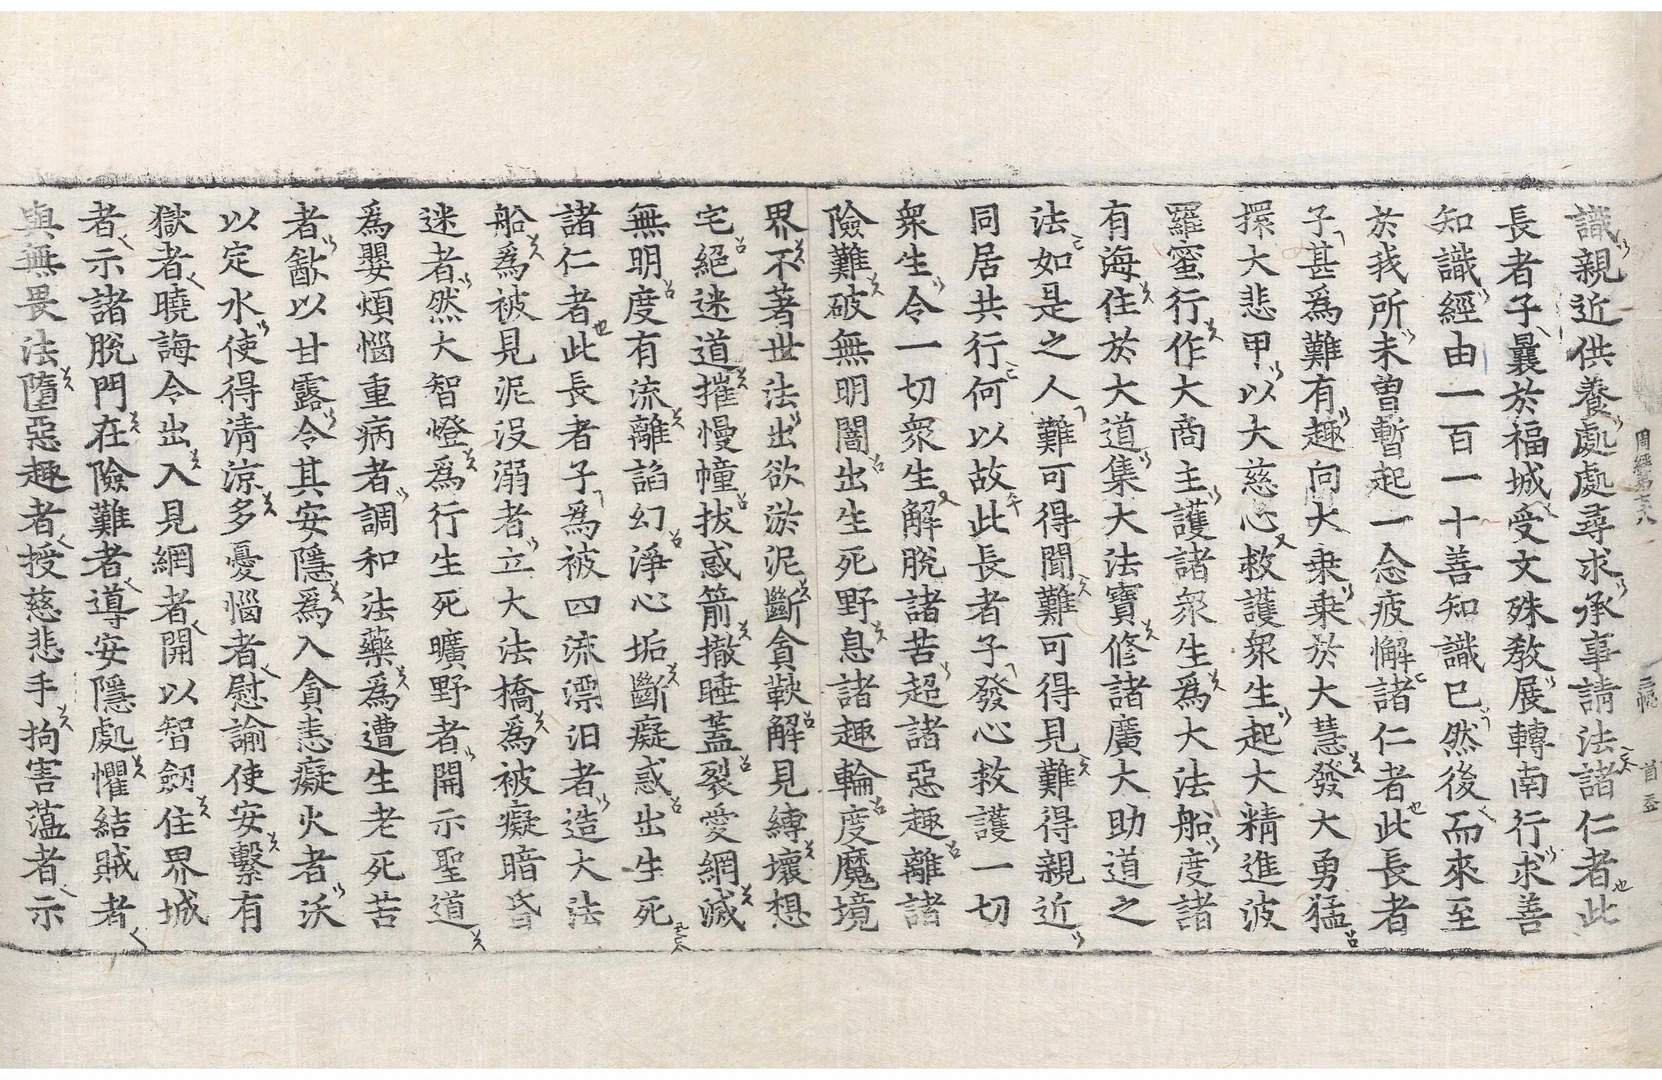 識親近供養處處尋求承事請法諸仁者此
長者子曩於福城受文殊敎展轉南行求善
知識經由一百一十善知識已然後而來至
於我所未曾暫起一念疲懈諸仁者此長者
子甚爲難有趣向大乘乘於大慧發大勇猛
擐大悲甲以大慈心救護衆生起大精進波
羅蜜行作大商主護諸衆生爲大法船度諸
有海住於大道集大法寶修諸廣大助道之
法如是之人難可得聞難可得見難得親近
同居共行何以故此長者子發心救護一切
衆生令一切衆生解脫諸苦超諸惡趣離諸
險難破無明闇出生死野息諸趣輪度魔境
界不著世法出欲淤泥斷貪鞅解見縛壞想
宅絕迷道摧慢幢拔惑箭撤睡蓋裂愛網滅
無明度有流離諂幻淨心垢斷癡惑出生死
諸仁者此長者子爲被四流漂汨者造大法
船爲被見泥沒溺者立大法橋爲被癡暗昏
迷者然大智燈爲行生死曠野者開示聖道
爲嬰煩惱重病者調和法藥爲遭生老死苦
者飮以甘露令其安隱爲入貪恚癡火者沃
以定水使得淸涼多憂惱者慰諭使安繫有
獄者曉誨令出入見網者開以智劒住界城
者示諸脫門在險難者導安隱處懼結賊者
與無畏法墮惡趣者授慈悲手拘害蘊者示